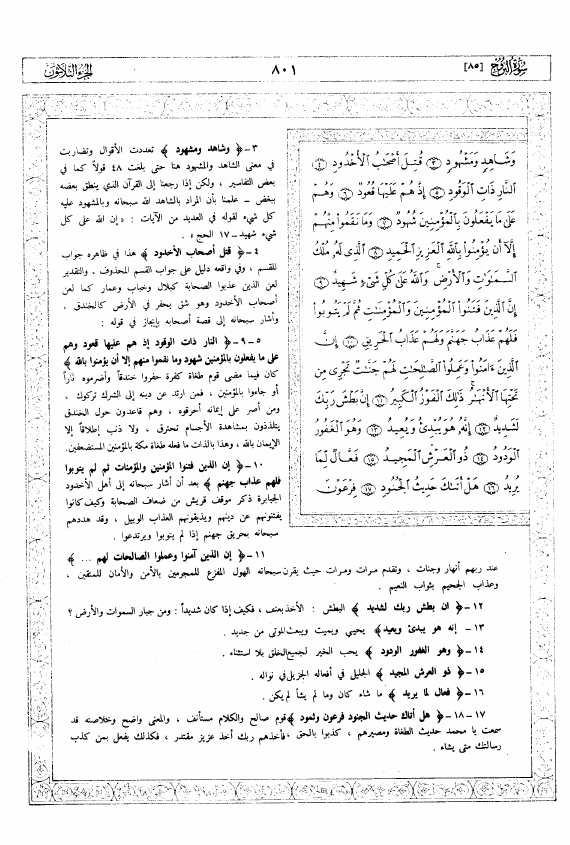 سورة البروج [٨٥]
٨٠١
الجزء الثلاثون
وَشَاهِدٍ وَمَشْهُودٍ ٣ قُتِلَ أَصْحَٰبُ ٱلْأُخْدُودِ ٤
ٱلنَّارِ ذَاتِ ٱلْوَقُودِ ٥ إِذْ هُمْ عَلَيْهَا قُعُودٌ ٦ وَهُمْ
عَلَىٰ مَا يَفْعَلُونَ بِٱلْمُؤْمِنِينَ شُهُودٌ ٧ وَمَا نَقَمُوا۟ مِنْهُمْ
إِلَّآ أَن يُؤْمِنُوا۟ بِٱللَّهِ ٱلْعَزِيزِ ٱلْحَمِيدِ ٨ ٱلَّذِى لَهُۥ مُلْكُ
ٱلسَّمَٰوَٰتِ وَٱلْأَرْضِ ۚ وَٱللَّهُ عَلَىٰ كُلِّ شَىْءٍ شَهِيدٌ ٩
إِنَّ ٱلَّذِينَ فَتَنُوا۟ ٱلْمُؤْمِنِينَ وَٱلْمُؤْمِنَٰتِ ثُمَّ لَمْ يَتُوبُوا۟
فَلَهُمْ عَذَابُ جَهَنَّمَ وَلَهُمْ عَذَابُ ٱلْحَرِيقِ ١٠ إِنَّ
ٱلَّذِينَ ءَامَنُوا۟ وَعَمِلُوا۟ ٱلصَّٰلِحَٰتِ لَهُمْ جَنَّٰتٌ تَجْرِى مِن
تَحْتِهَا ٱلْأَنْهَٰرُ ۚ ذَٰلِكَ ٱلْفَوْزُ ٱلْكَبِيرُ ١١ إِنَّ بَطْشَ رَبِّكَ
لَشَدِيدٌ ١٢ إِنَّهُۥ هُوَ يُبْدِئُ وَيُعِيدُ ١٣ وَهُوَ ٱلْغَفُورُ
ٱلْوَدُودُ ١٤ ذُو ٱلْعَرْشِ ٱلْمَجِيدُ ١٥ فَعَّالٌ لِّمَا
يُرِيدُ ١٦ هَلْ أَتَىٰكَ حَدِيثُ ٱلْجُنُودِ ١٧ فِرْعَوْنَ
٣ - ﴿ وشاهد ومشهود ﴾ تعددت الأقوال وتضاربت
في معنى الشاهد والمشهود هنا حتى بلغت ٤٨ قولاً كما في
بعض التفاسير ، ولكن إذا رجعنا إلى القرآن الذي ينطق بعضه
ببعض - علمنا بأن المراد بالشاهد الله سبحانه وبالمشهود عليه
كل شيء لقوله في العديد من الآيات : « إن الله على كل
شيء شهيد - ١٧ الحج » .
٤ - ﴿ قتل أصحاب الأخدود ﴾ هذا في ظاهره جواب
للقسم ، وفي واقعه دليل على جواب القسم المحذوف ، والتقدير
لعن الذين عذبوا الصحابة كبلال وخباب وعمار كما لعن
أصحاب الأخدود وهو شق يحفر في الأرض كالخندق ،
وأشار سبحانه إلى قصة أصحابه بإيجاز في قوله :
٥ - ٩ - ﴿ النار ذات الوقود إذ هم عليها قعود وهم
على ما يفعلون بالمؤمنين شهود وما نقموا منهم إلا أن يؤمنوا بالله ﴾
كان فيما مضى قوم طغاة كفرة حفروا خندقاً وأضرموه ناراً
أو جاءوا بالمؤمنين ، فمن ارتد عن دينه إلى الشرك تركوه ،
ومن أصر على إيمانه أحرقوه ، وهم قاعدون حول الخندق
يتلذذون بمشاهدة الأجسام تحترق ، ولا ذنب إطلاقاً إلا
الإيمان بالله ، وهذا بالذات ما فعله طغاة مكة بالمؤمنين المستضعفين.
١٠ - ﴿ إن الذين فتنوا المؤمنين والمؤمنات ثم لم يتوبوا
فلهم عذاب جهنم ﴾ بعد أن أشار سبحانه إلى أهل الأخدود
الجبابرة ذكر موقف قريش من ضعاف الصحابة وكيف كانوا
يفتنونهم عن دينهم ويذيقونهم العذاب الوبيل ، وقد هددهم
سبحانه بحريق جهنم إذا لم يتوبوا ويرتدعوا .
١١ - ﴿ إن الذين آمنوا وعملوا الصالحات لهم ... ﴾
عند ربهم أنهار وجنات ، وتقدم مرات ومرات حيث يقرن سبحانه الهول المفزع للمجرمين بالأمن والأمان للمتقين ،
وعذاب الجحيم بثواب النعيم .
١٢ - ﴿ ان بطش ربك لشديد ﴾ البطش : الأخذ بعنف ، فكيف إذا كان شديداً : ومن جبار السموات والأرض ؟
١٣ - إنه هو يبدئ ويعيد﴾ يحيي ويميت ويبعث للموتى من جديد .
١٤ - ﴿ وهو الغفور الودود ﴾ يحب الخير لجميع الخلق بلا استثناء .
١٥ - ﴿ ذو العرش المجيد ﴾ الجليل في أفعاله الجزيل في نواله .
١٦ - ﴿ فعال لما يريد ﴾ ما شاء كان وما لم يشأ لم يكن .
١٧ - ١٨ - ﴿ هل أتاك حديث الجنود فرعون وثمود ﴾ قوم صالح والكلام مستأنف ، والمعنى واضح وخلاصته قد
سمعت يا محمد حديث الطغاة ومصيرهم ، كذبوا بالحق ، فأخذهم ربك أخذ عزيز مقتدر ، فكذلك يفعل بمن كذب
رسالتك متى يشاء .